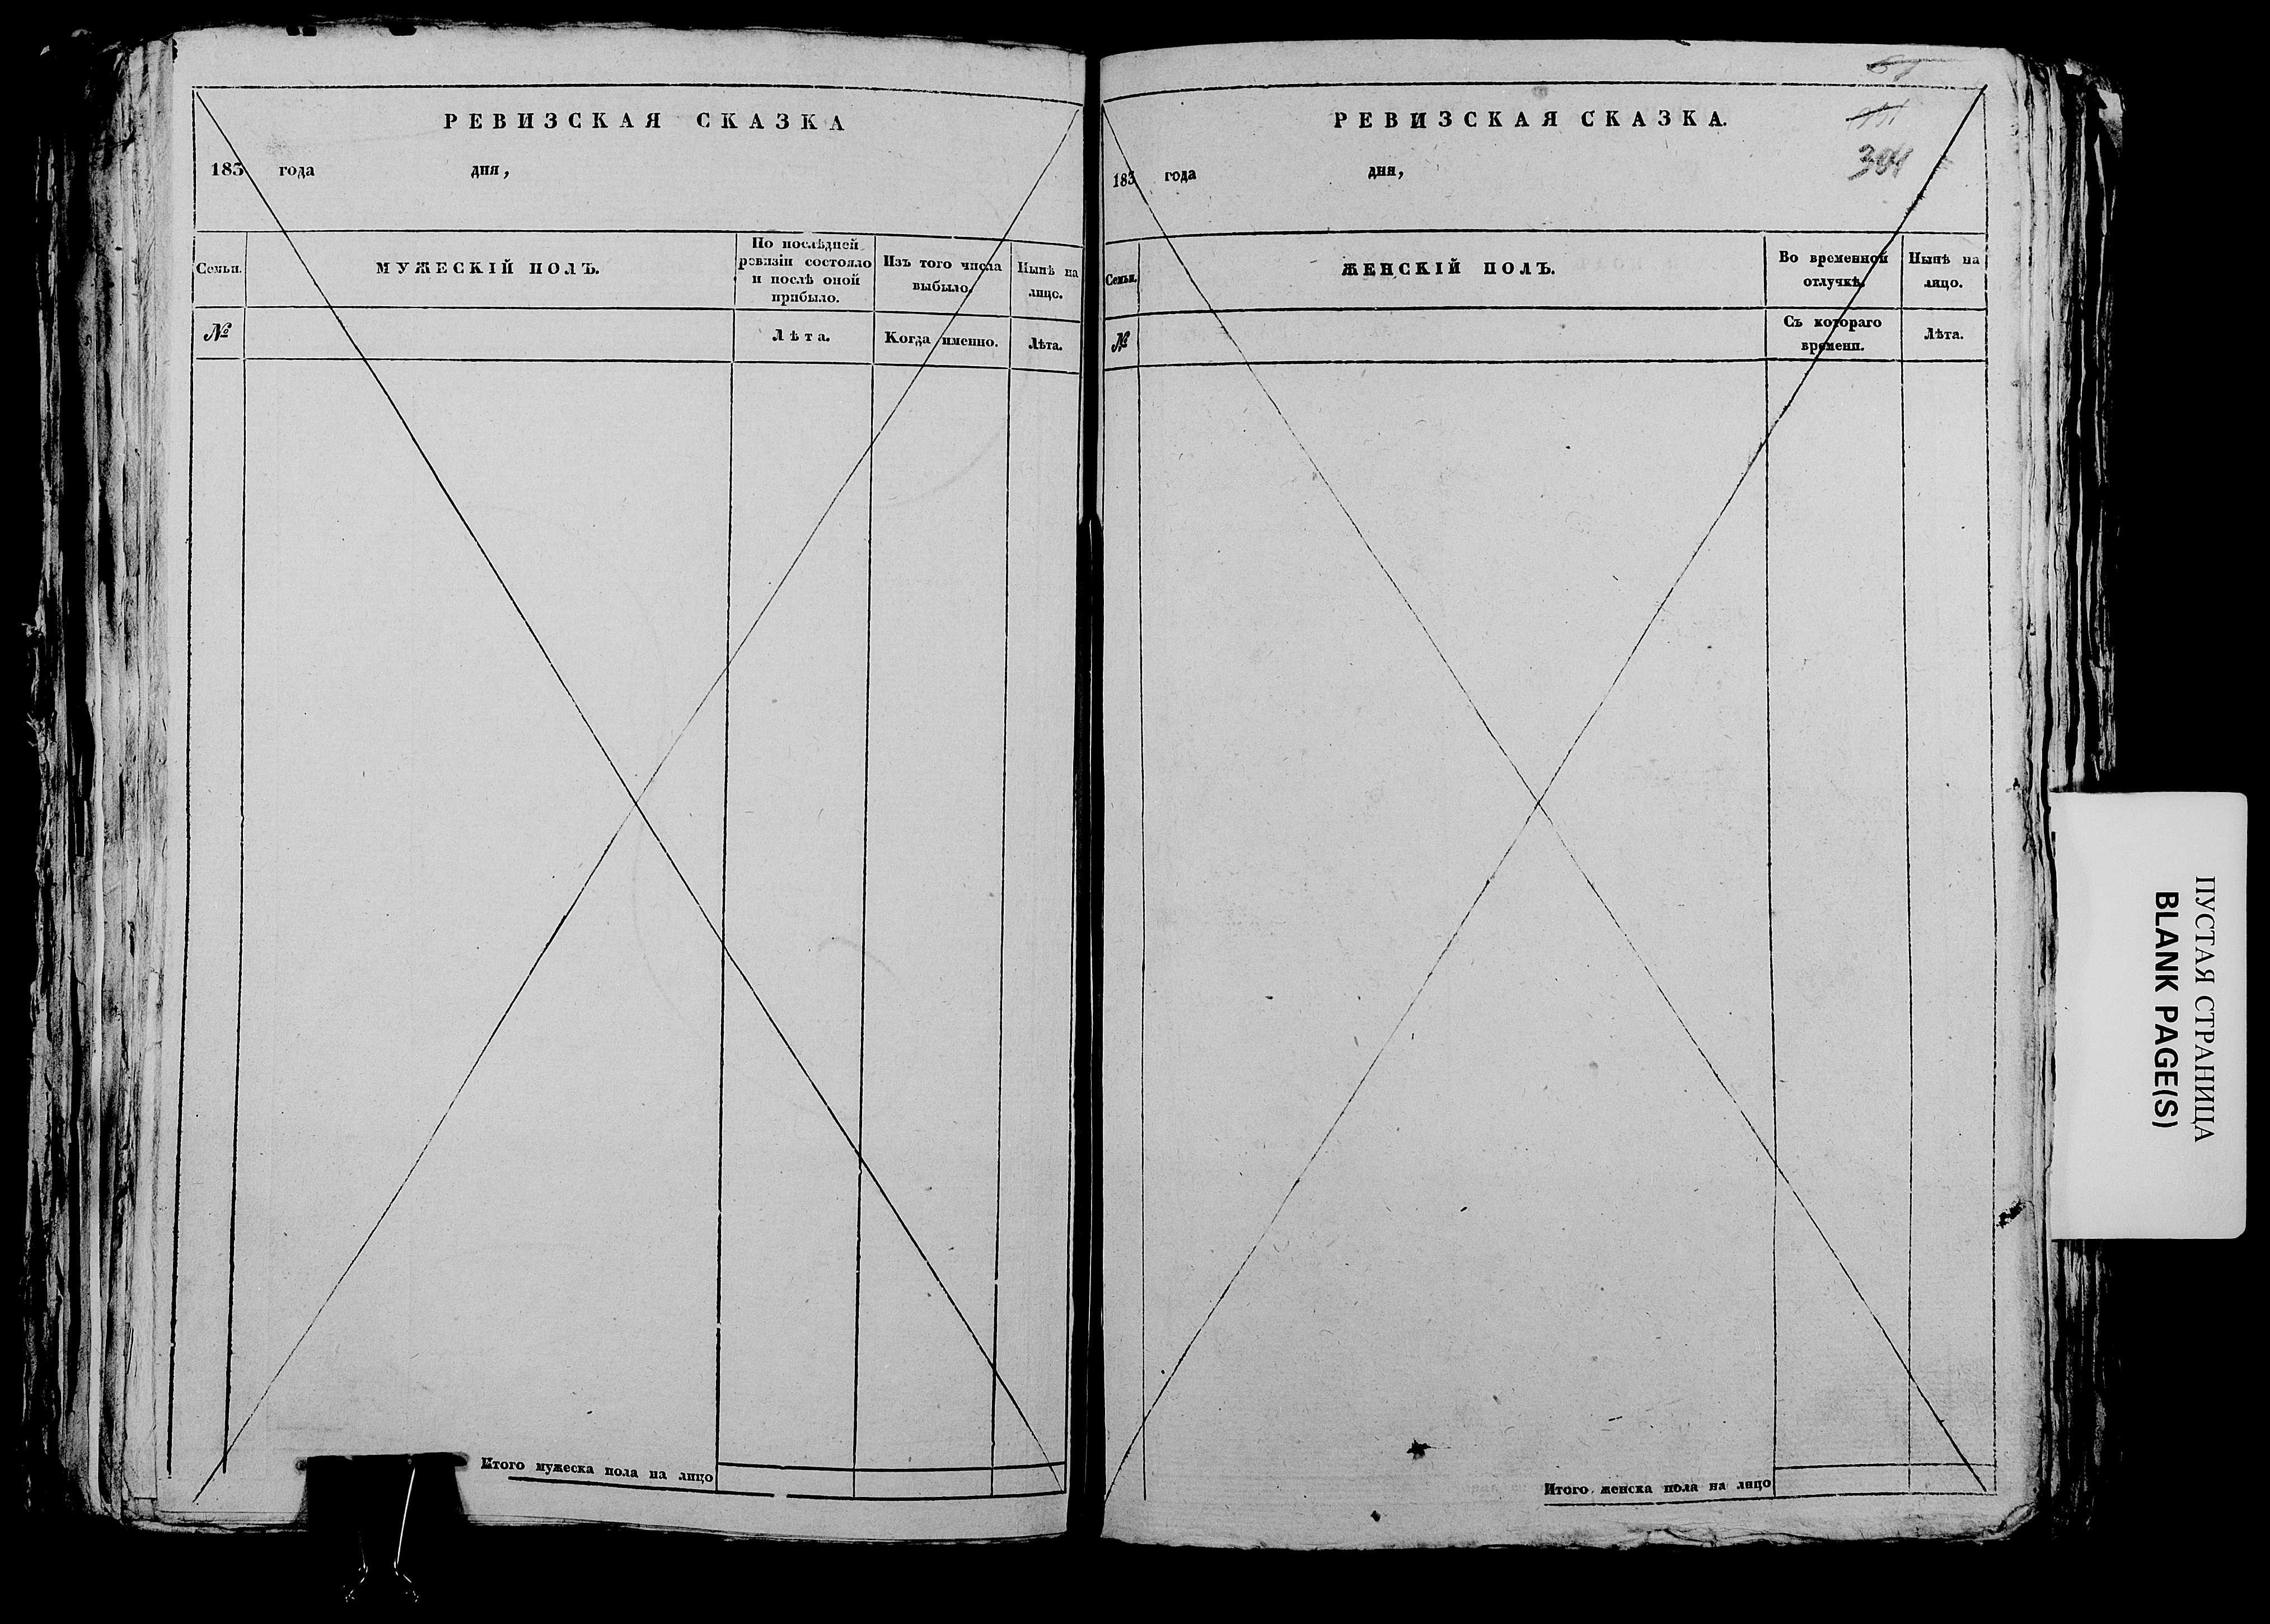 РЕВИЗСКАЯ СКАЗКА
183 года дня,
Семьи.
МУЖЕСКІЙ ПОЛЪ.
По послѣдней
ревизіи состояло
и послѣ оной
прибыло.
Изъ того числа
выбыло.
Нынѣ на
лицо.
№
Лѣта.
Когда именно.
Лѣта.
Итого мужеска пола на лицо
304
РЕВИЗСКАЯ СКАЗКА.
183 года дня,
Семьи.
ЖЕНСКІЙ ПОЛЪ.
Во временной
отлучкѣ.
Нынѣ на
лицо.
№
Съ котораго
времени.
Лѣта.
Итого женска пола на лицо
ПУСТАЯ СТРАНИЦА
BLANK PAGE(S)